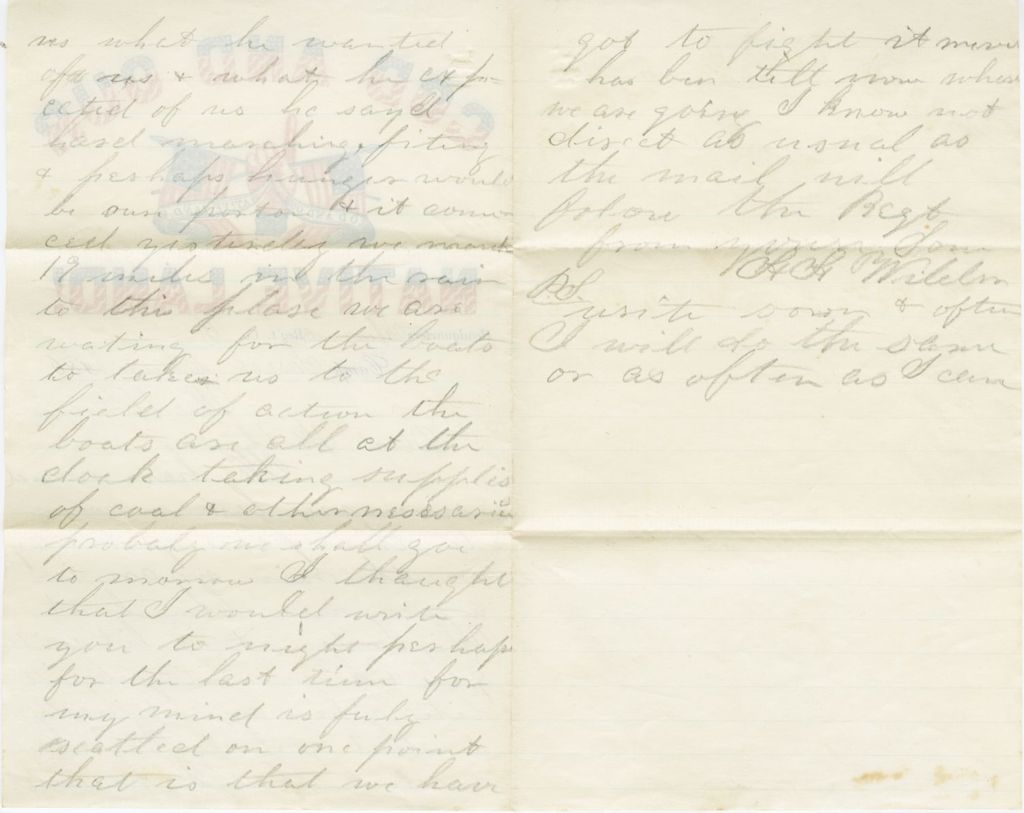 us what he wanted
of us & what he exp-
ected of us he sayd
hard marching, fiting
& perhaps hunger would
be our portion & it comen
ced yisterday we march
19 miles in the rain
to this plase we are
wating for the boats
to take us to the
field of action the
boats are all at the
dock taking supplies
of coal & other nessesaries
probaly we shall go
to morrow I thought
that I would write
you to night perhaps
for the last time for
my mind is fuly
seattled on one point
that is that we have
got to fight it never
has ben till now where
we are going I know not
direct as usual as
the mail will
folow the Regt
from your Son
H H
PS
write soon & often
I will do the same
or as often as I can
OUR
AND
OUR
NATIVE LAND